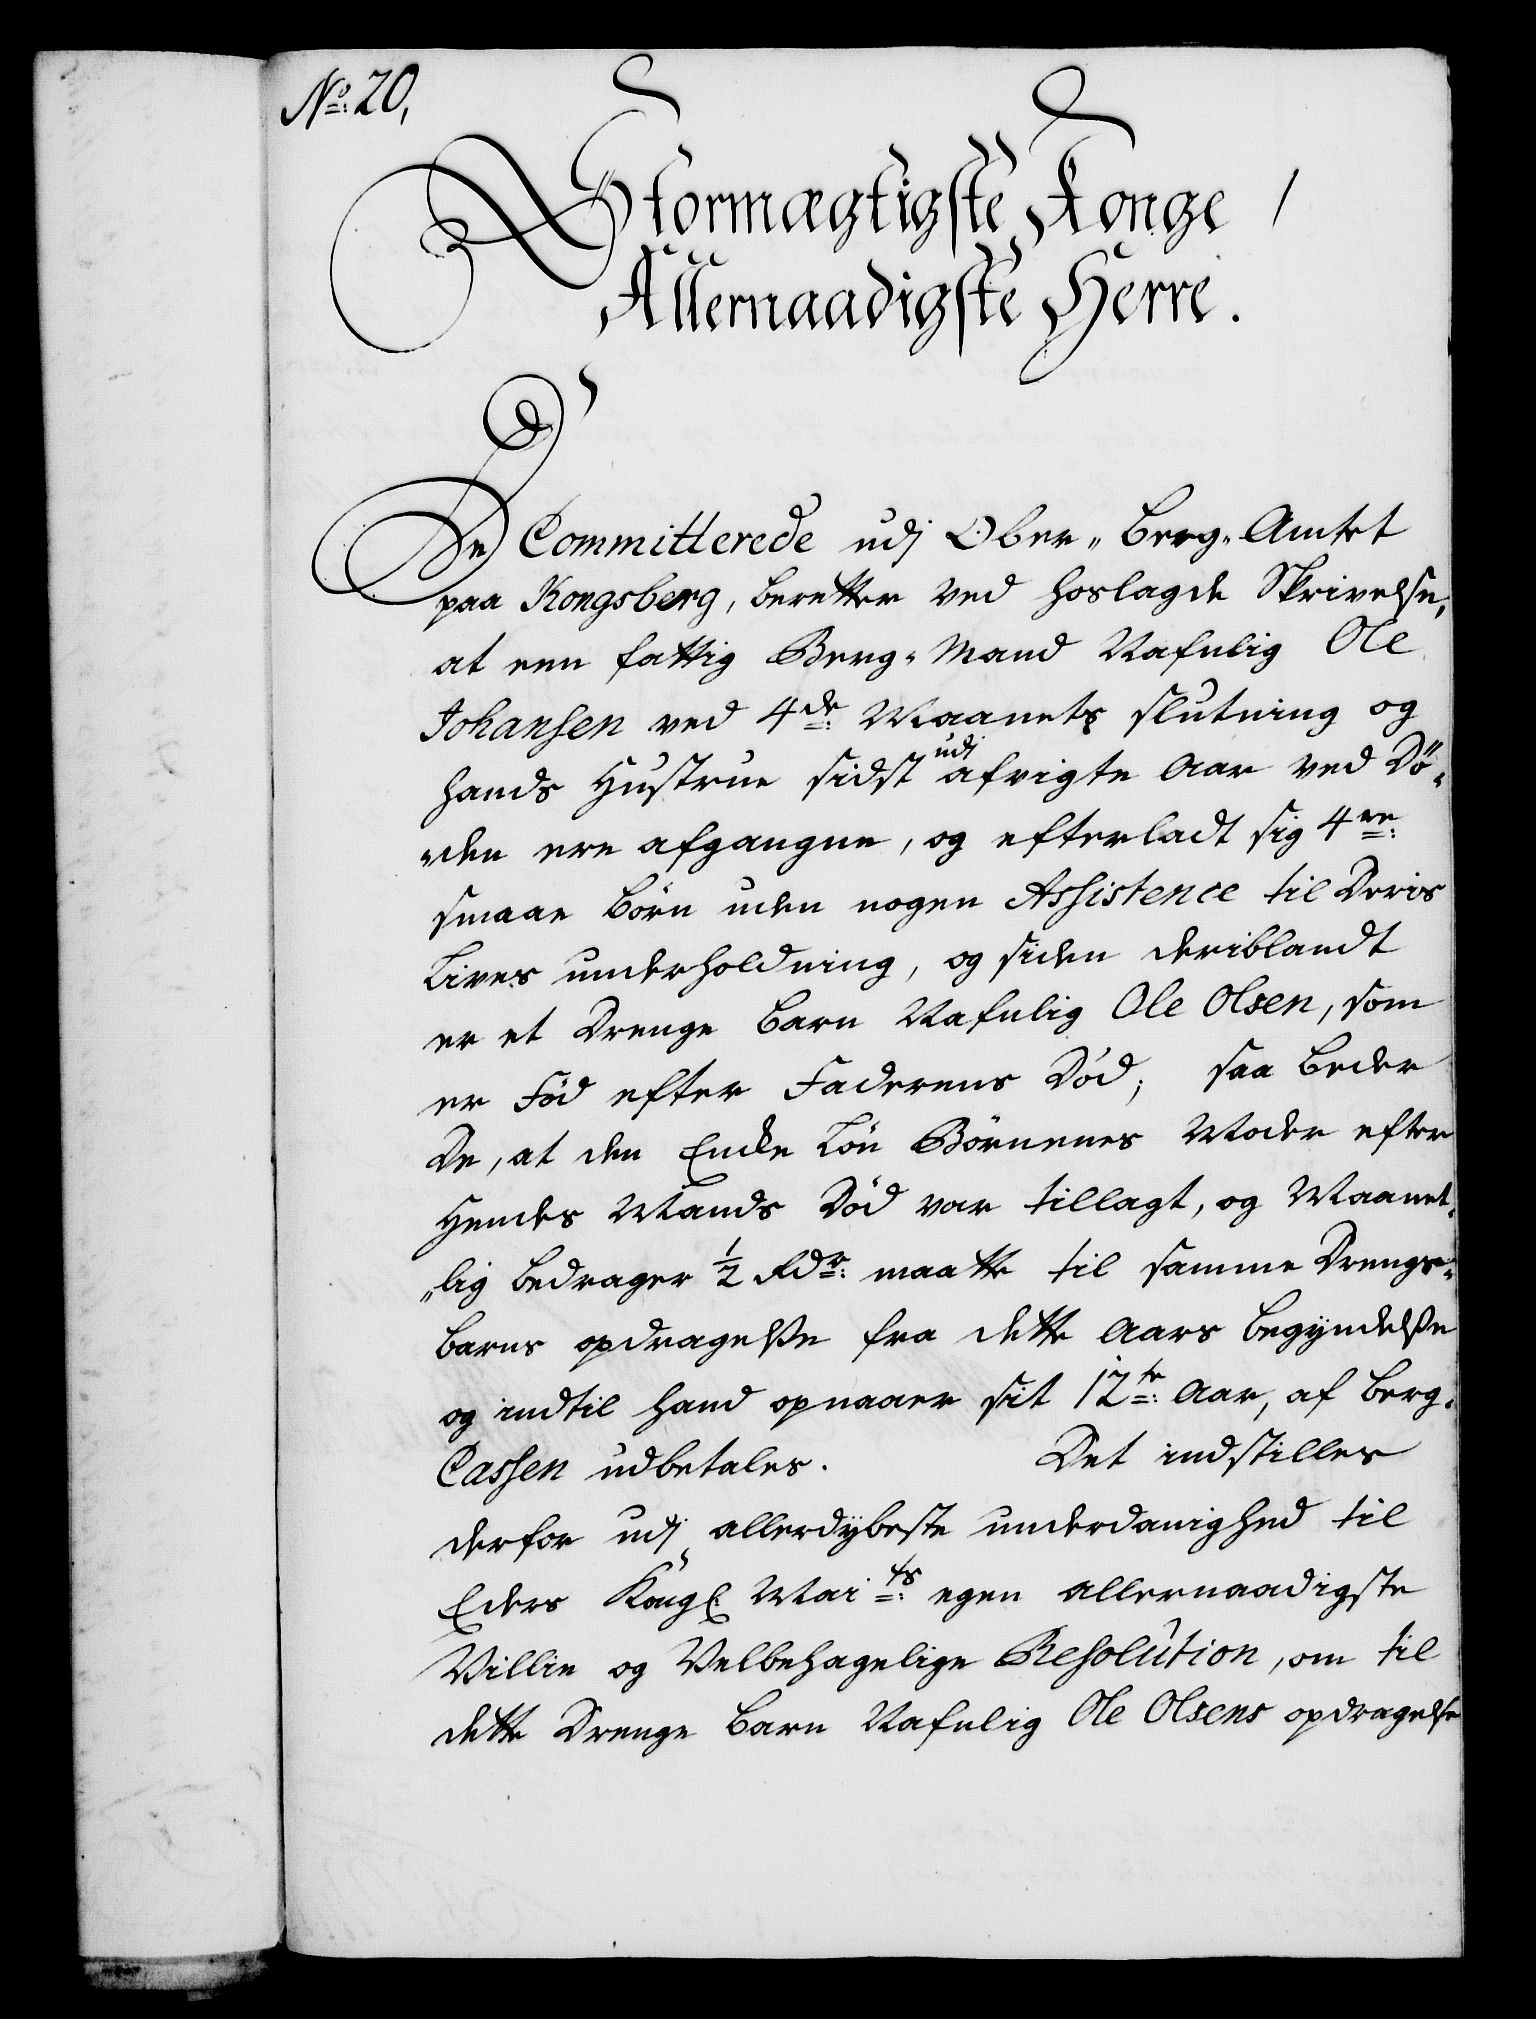 No: 20,
Stormægtigste Konge /
Allernaadigste Herre.
De Committerede udj Ober„Berg„Amtet
paa Kongsberg, beretter ved hoslagde Skrivelse,
at een fattig Berg„Mand Nafnlig Ole
Johansen ved 4de: Maanets slutning og
hands Hustrue sidst udj afvigte Aar ved Dö„
„den ere afgangne, og efterladt sig 4re:
smaae Börn uden nogen Assistence til Deris
Lives underholdning, og siden deriblandt
er et Drenge Barn Nafnlig Ole Olsen, som
er Föd efter Faderens Död; saa beder
De, at den Enke Lön Börnenes Moder efter
Hendes Mands Död var tillagt, og Maanet„
„lig bedrager ½ Rdr: maatte til samme Drenge„
barns opdragelse fra dette Aars begyndelse
og indtil hand opnaaer sit 12te: Aar, af Berg„
Cassen udbetales. Det indstilles
derfor udj allerdybeste underdanighed til
Eders Kongl: Mai ts: egen allernaadigste
Villie og Velbehagelige Resolution, om til
dette Drenge Barn Nafnlig Ole Olsens opdragelse